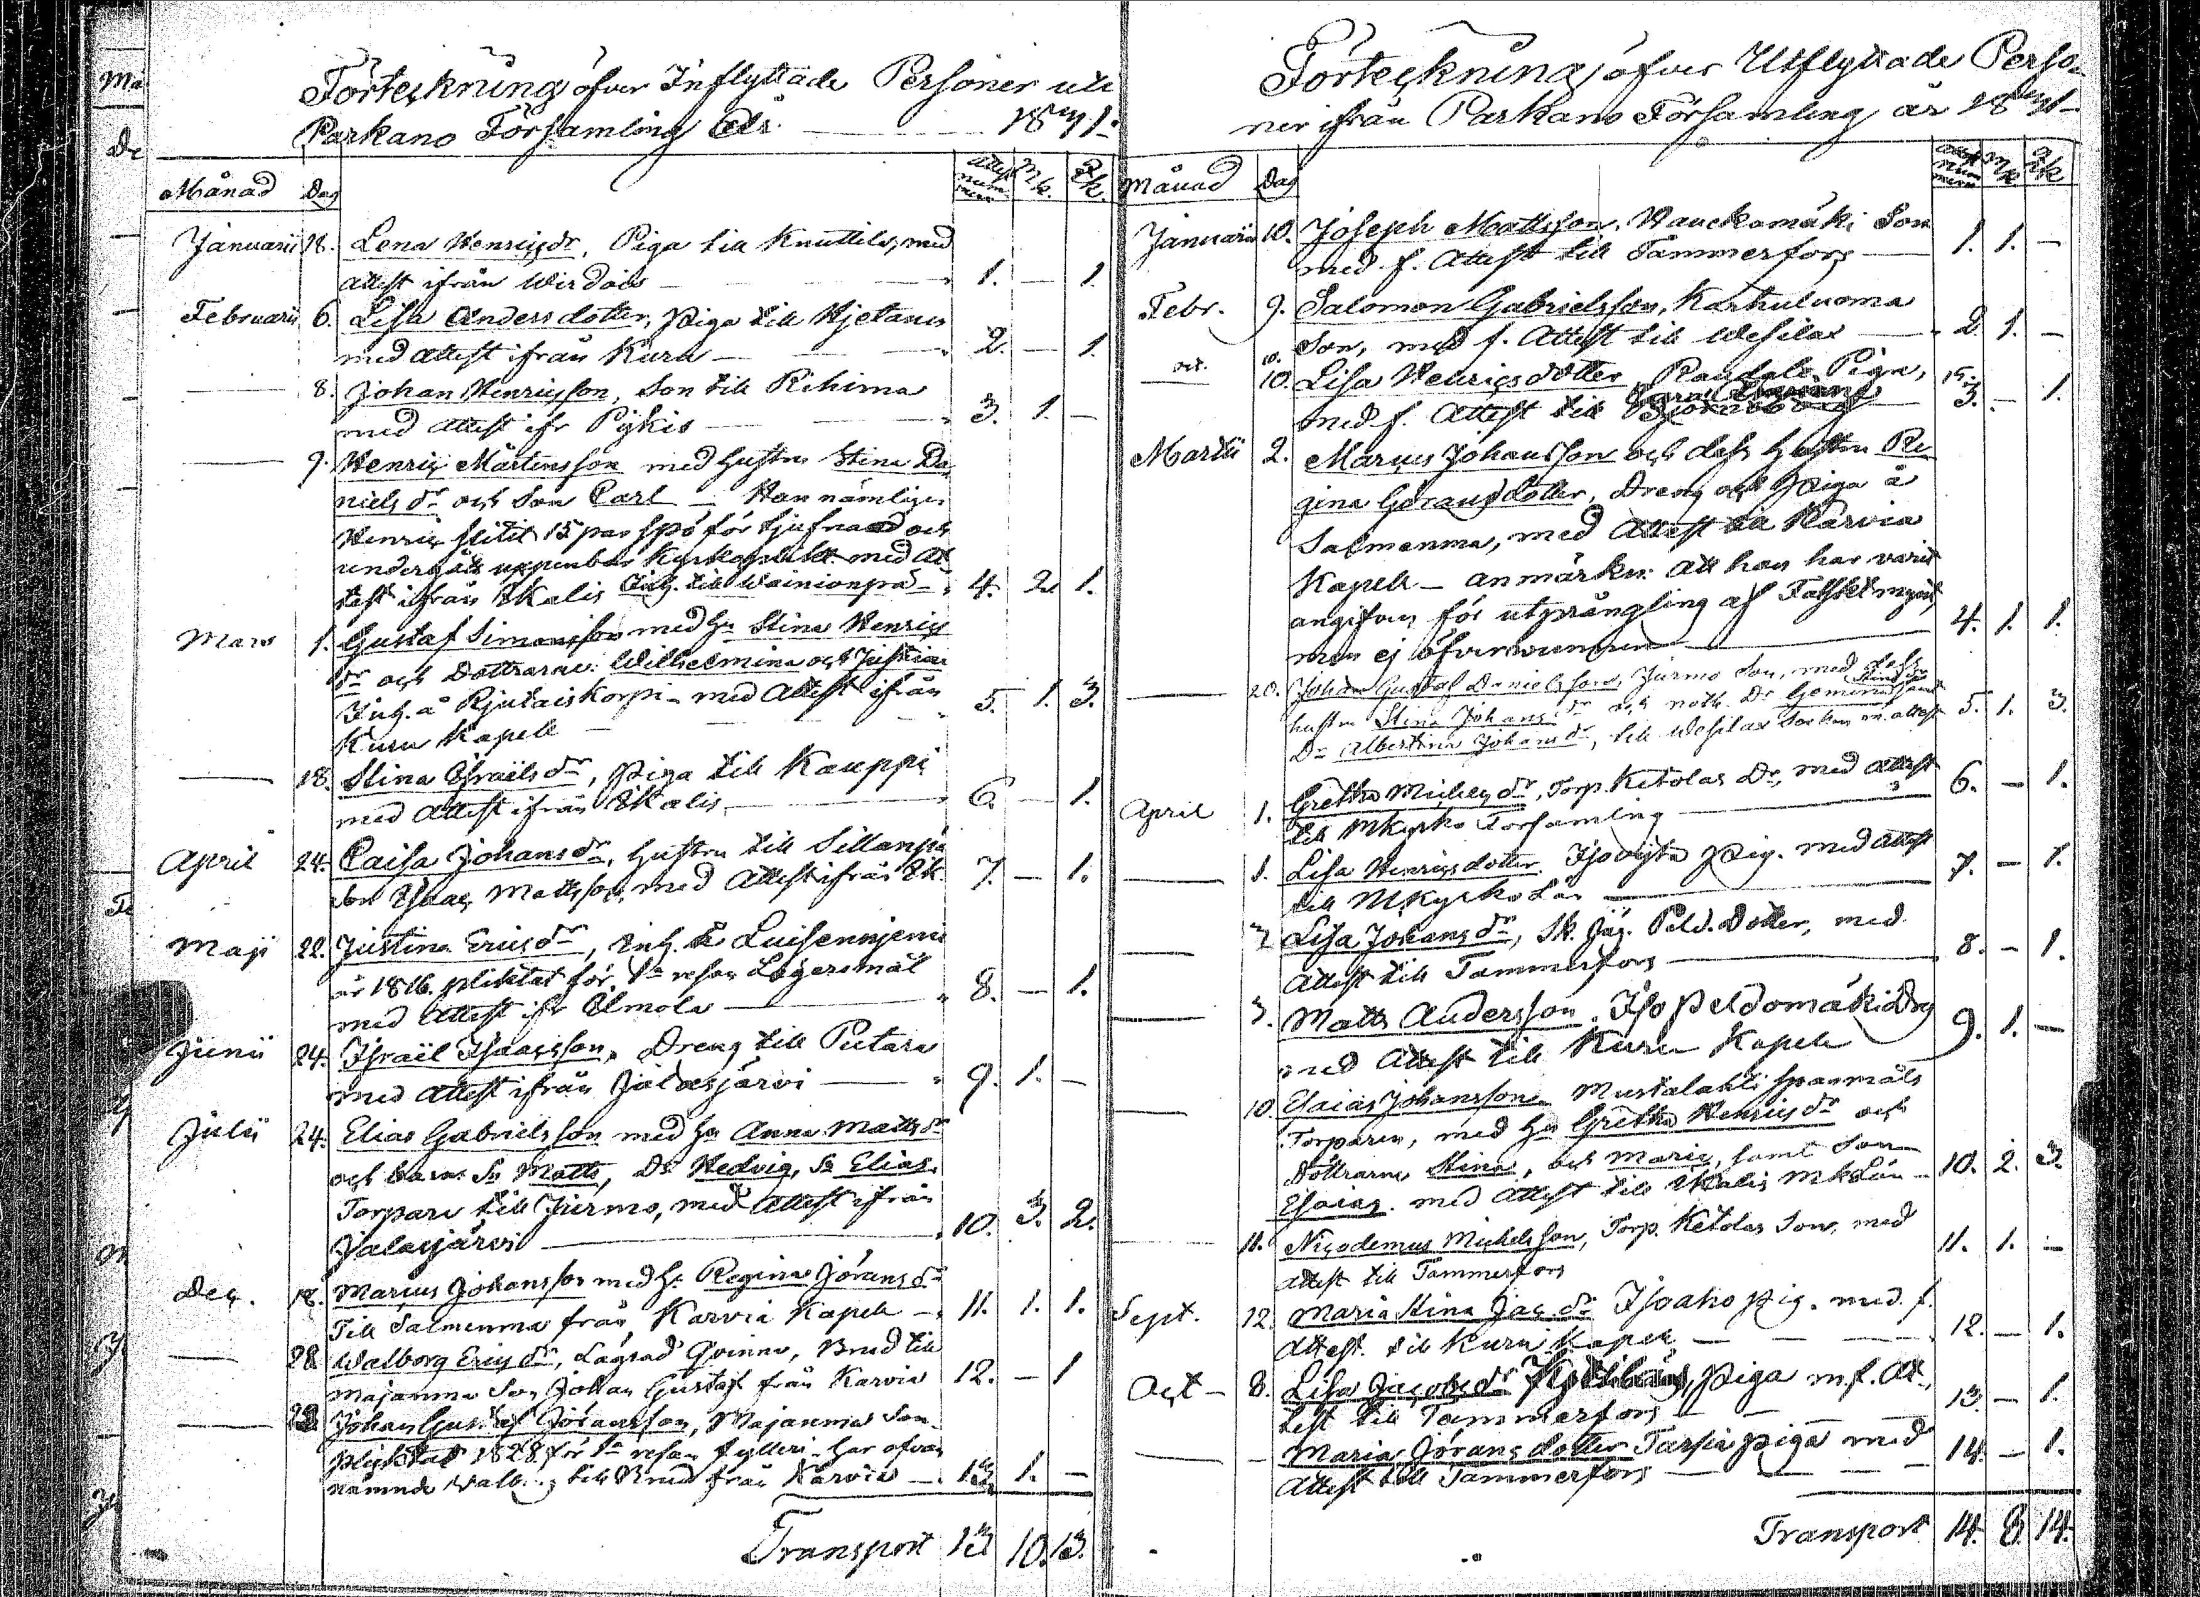 Förteckning öfver Inflyttade Personer uti
Parkano Församling År 1831.
Månad Dag Attest nummer Mk. Qk.
Januarii 18. Lena Henricsdr, Piga till Knuttila, med
attest ifrån Wirdois 1. — 1.
Februarii 6. Lisa Andersdotter, Piga till Hjetanen
med attest ifrån Kuru 2. — 1.
8. Johan Henricsson, Son till Rihima
med attest ifr Pykis 3. 1. —
9. Henric Mårtensson med hustru Stina Da
niels dr och Son Carl — Han nämligen
Henric slitit 15 par spö för tjufnad och
undergått uppenbar Kyrkoplikt med At
test ifrån Ikalis Inh. till Wainionpää 4. 2. 1.
Mars 1. Gustaf Simonsson med Hu Stina Henrics
dr och Döttrarne: Wilhelmina och Justina
Inh. å Rjutaiskorpi — med Attest ifrån
Kuru Kapell 5. 1. 3.
18. Stina Israëls dr, Piga till Kauppi
med attest ifrån Ikalis 6. — 1.
April 24. Caisa Johans dr, hustru till Sillanpä
Son Isaac Mattsson, med Attest ifrån Ik. 7. — 1.
Maji 22. Justina Erics dr, Inh. å Luisenniemi
år 1816. pliktat för 1a resan Lägersmål
med Attest ifr Ilmola 8. — 1.
Junii 24. Israël Isaacsson, Dreng till Pietara
med Attest ifrån Jalasjärvi 9. 1. —
Julii 24. Elias Gabrielsson med Hu Anna Matts dr
och barn: Sn Matts, Dr Hedvig, Sn Elias.
Torpare till Jurmo, med Attest ifrån
Jalasjärvi 10. 3. 2.
Dec. 18. Marcus Johansson med Hu Regina Jörans dr
Till Salmenma från Karvia Kapell 11. 1. 1.
28. Walborg Erics dr, Lägrad Qvinna, Brud till
Majanma Son Johan Gustaf från Karvia 12. — 1
Johan Gustaf Jöransson, Majanma Son
pliktat 1828 för 1a resan fylleri. har ofvan
nämnde Walb. till Brud från Karvia 13. 1. —
Transport 13 10. 13.
Förteckning öfver Utflyttade Perso-
ner ifrån Parkano Församling år 1831
Månad Dag Attest nummer Mk Qk
Januarii 10. Joseph Mattsson, Hauckamäki Son
med f. Attest till Tammerfors 1. 1. —
Febr. 9. Salomon Gabrielsson, Karhuluoma
Son, med f. Attest till Wesilax 2. 1. —
10. Lisa Henricsdotter Raudala Piga,
med f. Attest till 3. — 1.
Martii 2. Marcus Johansson och dess hustru Re
gina Göransdotter, Dreng och Piga å
Salmenma, med Attest till Karvia
Kapell — anmärkn: att han har varit
angifven för utprångling af Falskt mynt,
men ej öfvervunnen 4. 1. 1.
20. Johan Gustaf Danielsson, Jurmo Son, med dess
hustru Stina Johans dr och
Dr Albertina Johans dr, till Wesilax Sockn m. attest 5. 1. 3.
April 1. Gretha Michels dr, Torp. Ketolas Dr, med Attest
till Mkyrko Församling 6. — 1.
1. Lisa Henricsdotter, Pig. med attest
till MKyrko Län 7. — 1.
3. Lisa Johans dr, Sk. Jäg. Peld. Dotter, med
Attest till Tammerfors 8. — 1.
3. Matts Andersson, Iso Peldomäki Drg
med Attest till Kuru Kapell 9. 1. —
10. Esaias Johansson Mustalahti Spanmåls
Torparen, med Hu Gretha Henrics dr och
Döttrarne Stina, och Maria, samt Son
Esaias. med Attest till Ikalis MkLän 10. 2. 3.
11. Nicodemus Michelsson, Torp. Ketolas Son, med
attest till Tammerfors 11. 1. —
Sept. 12. Maria Stina Jac. dr Isoaho Pig. med f.
Attest. till Kuru Kapell 12. — 1.
Oct — 8. Lisa Jacobs dr, Piga m. f. At-
test till Tammerfors 13. — 1.
Maria Jöransdotter Tarsia Piga med
Attest till Tammerfors 14. — 1.
Transport 14. 8. 14.